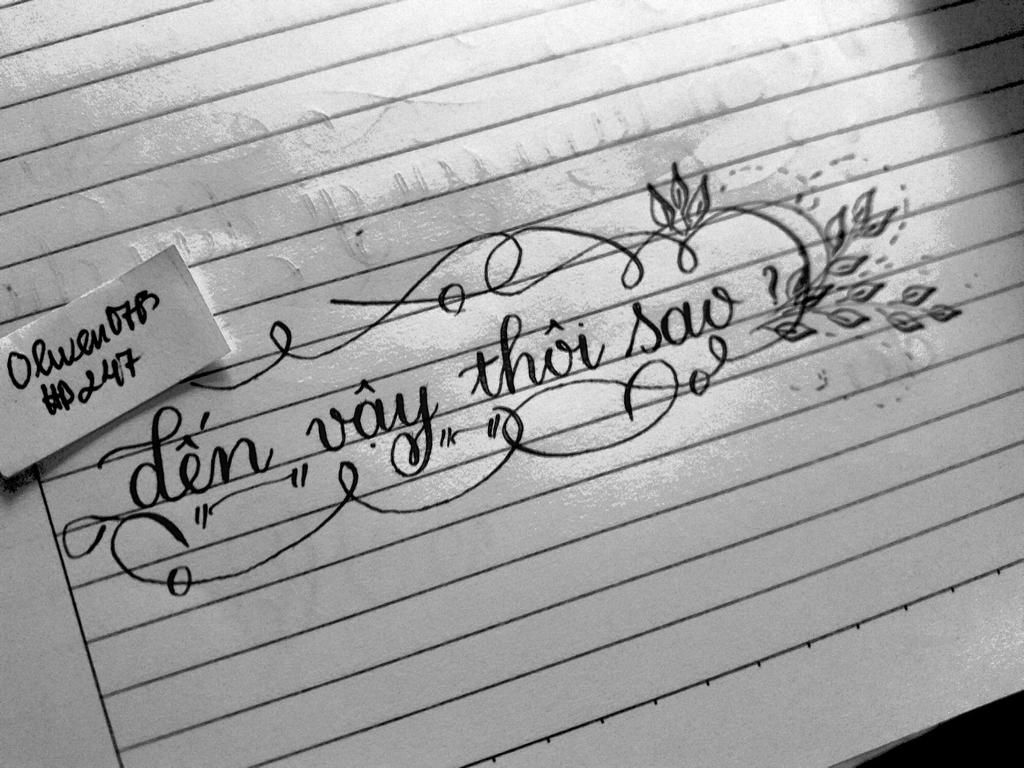 Olwen0785
HP247
đến vậy thôi sao ?